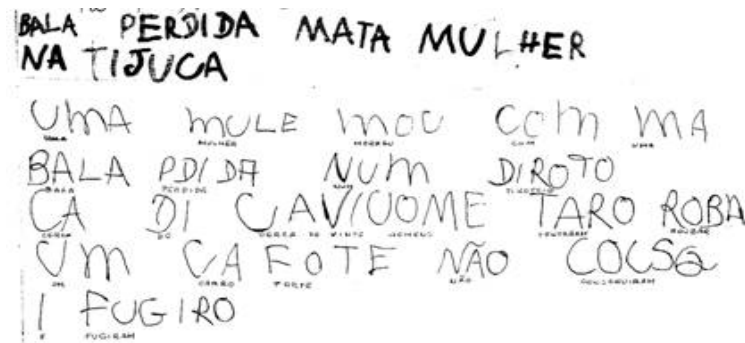 BALA PERDIDA MATA MULHER
NA TIJUCA
UMA MULE MOU COM MA
UMA MULHER MORREU COM UMA
BALA PDIDA NUM DIROTO
BALA PERDIDA NUM TIROTEIO
CA DI CAVICUOME TARO ROBA
CERCA DE CERCA DE VINTE HOMENS TENTARAM ROUBAR
UM CA FOTE NÃO
UM CARRO FORTE NÃO CONSEGUIRAM
I FUGIRO
E FUGIRAM